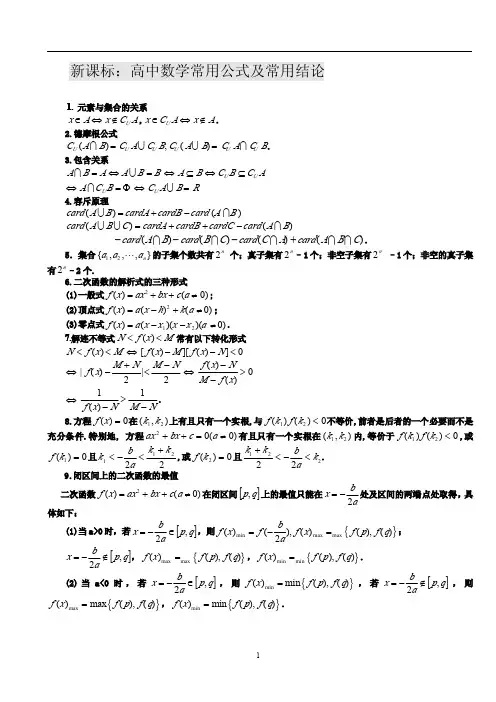 新课标：高中数学常用公式及常用结论
1. 元素与集合的关系
x∈A⇔x∉C_U A, x∈C_U A⇔x∉A.
2.德摩根公式
C_U(A∩B)=C_U A∪C_U B; C_U(A∪B)=C_U A∩C_U B.
3.包含关系
A∩B=A⇔A∪B=B⇔A⊆B⇔C_U B⊆C_U A
⇔A∩C_U B=Φ⇔C_U A∪B=R
4.容斥原理
card(A∪B)=cardA+cardB−card(A∩B)
card(A∪B∪C)=cardA+cardB+cardC−card(A∩B)
−card(A∩B)−card(B∩C)−card(C∩A)+card(A∩B∩C).
5．集合{a₁,a₂,⋯,aₙ}的子集个数共有2ⁿ 个；真子集有2ⁿ–1个；非空子集有2ⁿ –1个；非空的真子集
有2ⁿ–2个.
6.二次函数的解析式的三种形式
(1)一般式f(x)=ax²+bx+c(a≠0)；
(2)顶点式f(x)=a(x−h)²+k(a≠0)；
(3)零点式f(x)=a(x−x₁)(x−x₂)(a≠0).
7.解连不等式N<f(x)<M常有以下转化形式
N<f(x)<M⇔[f(x)−M][f(x)−N]<0
⇔|f(x)−(M+N)/2|<(M−N)/2⇔(f(x)−N)/(M−f(x))>0
⇔1/(f(x)−N)>1/(M−N).
8.方程f(x)=0在(k₁,k₂)上有且只有一个实根,与f(k₁)f(k₂)<0不等价,前者是后者的一个必要而不是
充分条件.特别地, 方程ax²+bx+c=0(a≠0)有且只有一个实根在(k₁,k₂)内,等价于f(k₁)f(k₂)<0,或
f(k₁)=0且k₁<−b/2a<(k₁+k₂)/2,或f(k₂)=0且(k₁+k₂)/2<−b/2a<k₂.
9.闭区间上的二次函数的最值
二次函数f(x)=ax²+bx+c(a≠0)在闭区间[p,q]上的最值只能在x=−b/2a处及区间的两端点处取得，具
体如下：
(1)当a>0时，若x=−b/2a∈[p,q]，则f(x)min=f(−b/2a),f(x)max=max{f(p),f(q)}；
x=−b/2a∉[p,q]，f(x)max=max{f(p),f(q)}，f(x)min=min{f(p),f(q)}.
(2)当a<0时，若x=−b/2a∈[p,q]，则f(x)min=min{f(p),f(q)}，若x=−b/2a∉[p,q]，则
f(x)max=max{f(p),f(q)}，f(x)min=min{f(p),f(q)}.
1